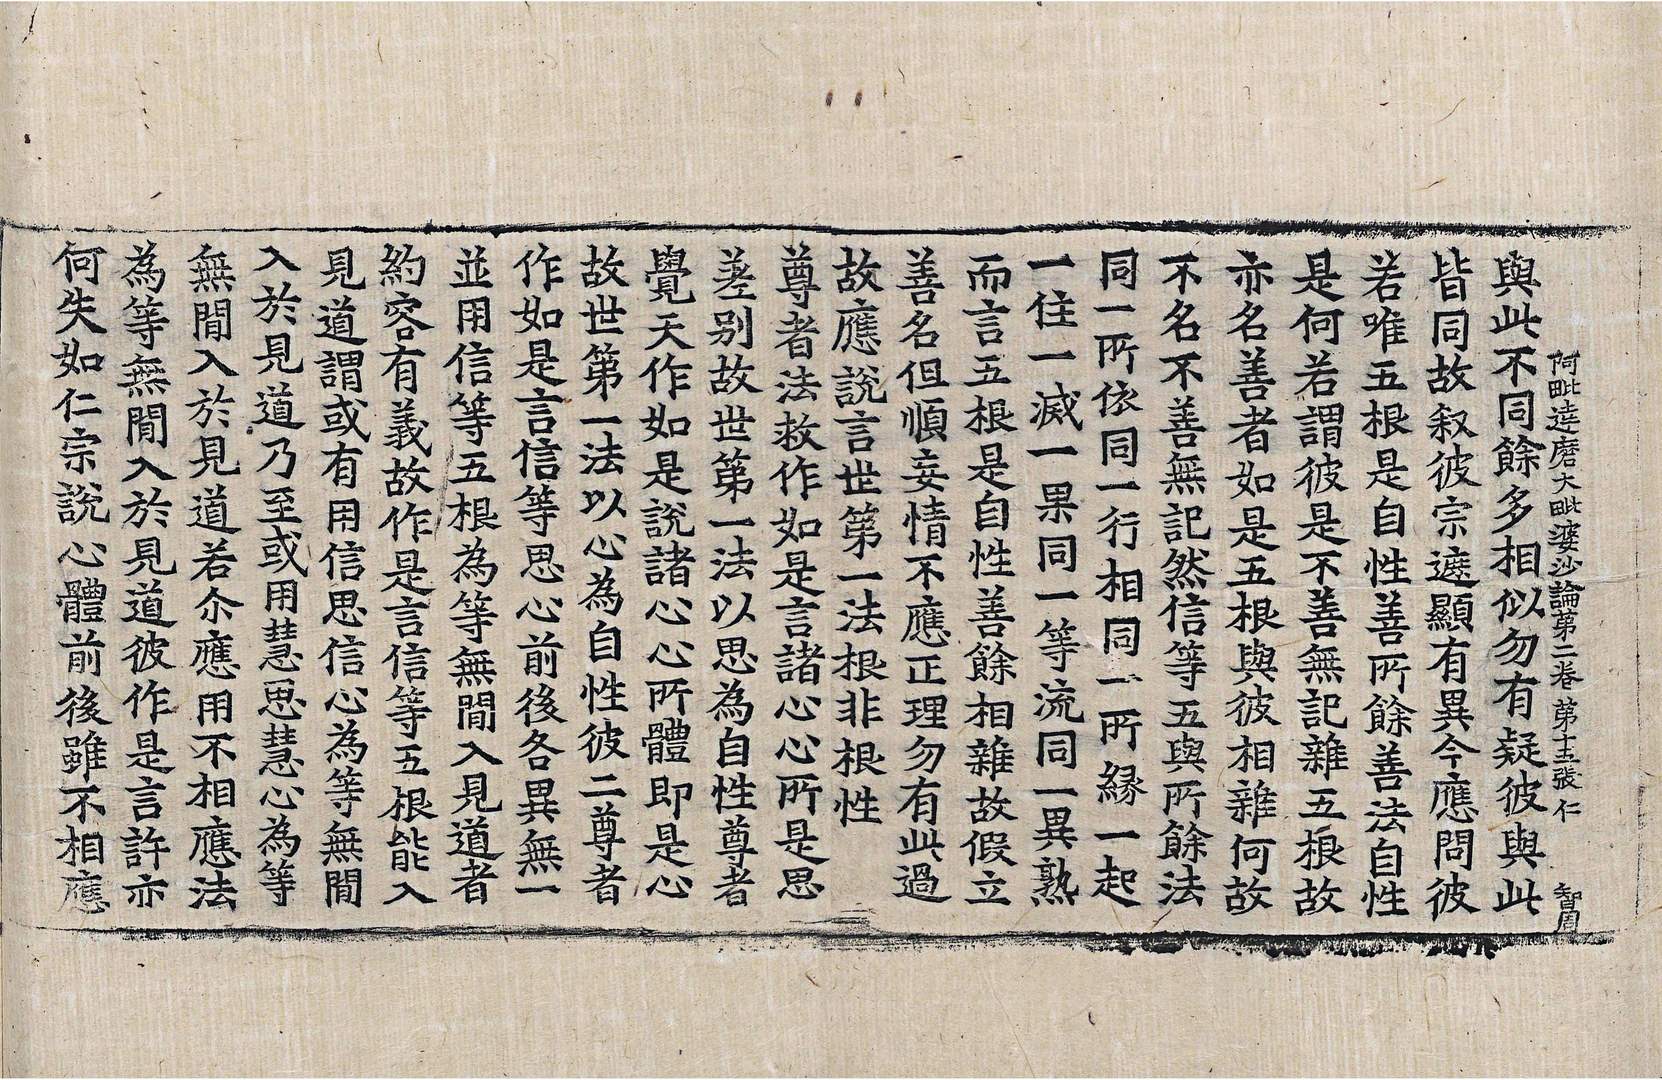 阿毗達磨大毗婆沙論第二卷 第十五張 仁 智周
與此不同餘多相似勿有疑彼與此
皆同故叙彼宗遮顯有異今應問彼
若唯五根是自性善所餘善法自性
是何若謂彼是不善無記雜五根故
亦名善者如是五根與彼相雜何故
不名不善無記然信等五與所餘法
同一所依同一行相同一所緣一起
一住一滅一果同一等流同一異熟
而言五根是自性善餘相雜故假立
善名但順妄情不應正理勿有此過
故應說言世第一法根非根性
尊者法救作如是言諸心心所是思
差別故世第一法以思為自性尊者
覺天作如是說諸心心所體即是心
故世第一法以心為自性彼二尊者
作如是言信等思心前後各異無一
並用信等五根為等無間入見道者
約容有義故作是言信等五根能入
見道謂或有用信思信心為等無間
入於見道乃至或用慧思慧心為等
無間入於見道若尒應用不相應法
為等無間入於見道彼作是言許亦
何失如仁宗說心體前後雖不相應